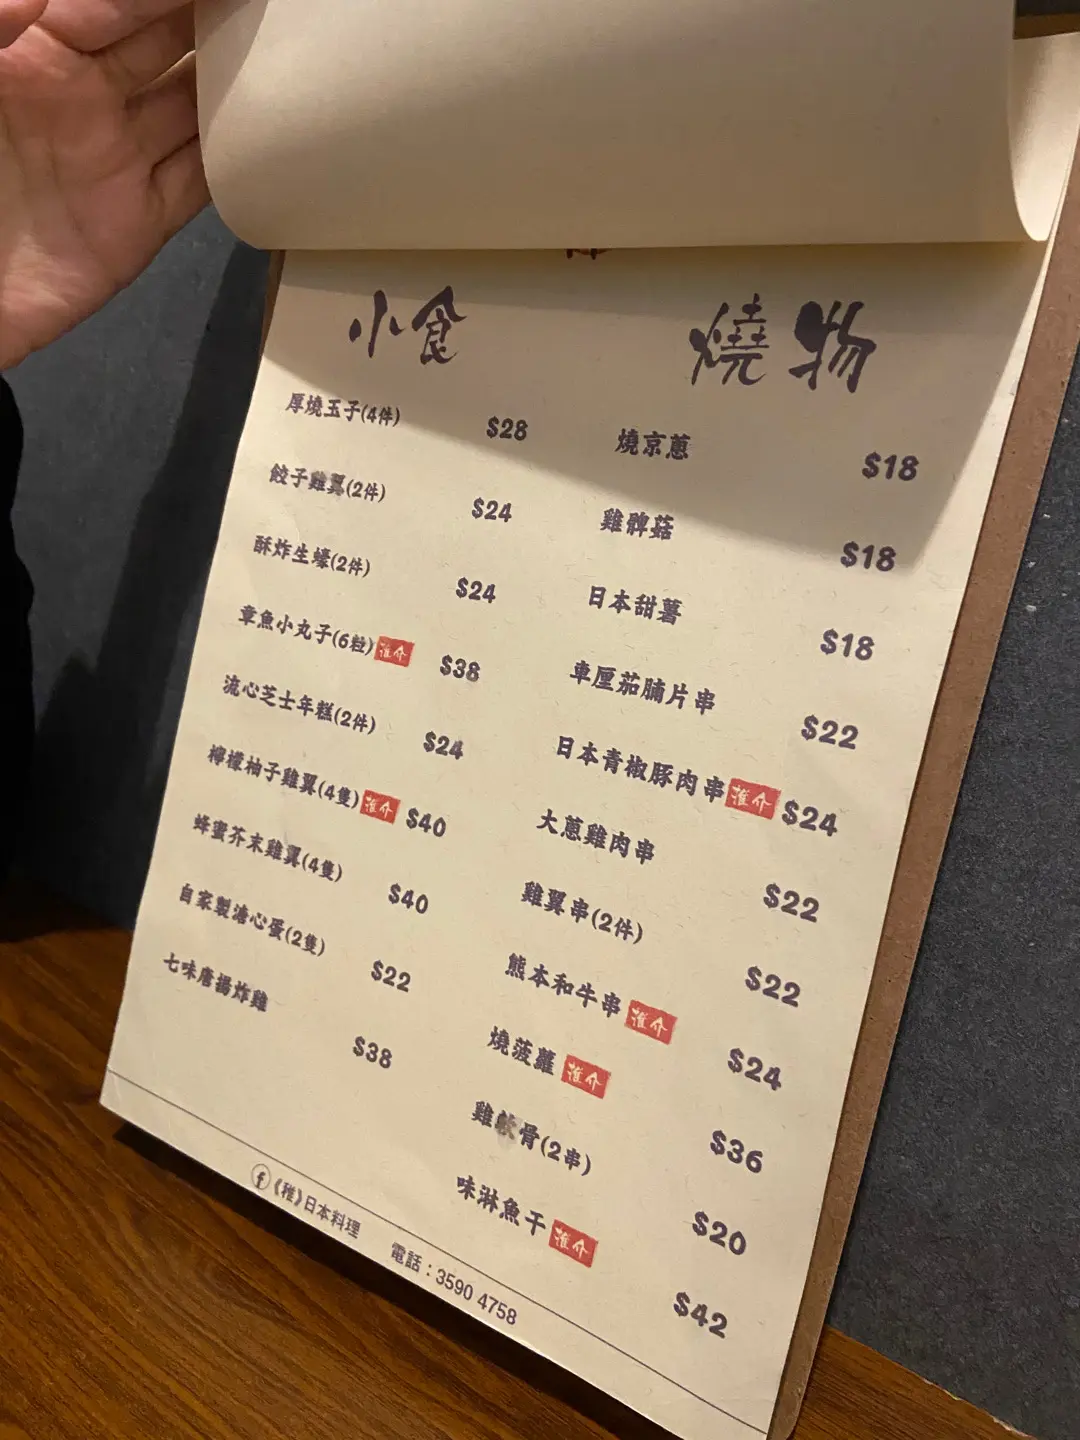 小食
厚燒玉子(4件) $28
餃子雞翼(2件) $24
酥炸生蠔(2件) $24
章魚小丸子(6粒) 推介 $38
流心芝士年糕(2件) $24
檸檬柚子雞翼(4隻) 推介 $40
蜂蜜芥末雞翼(4隻) $40
自家製溏心蛋(2隻) $22
七味唐揚炸雞 $38
燒物
燒京蔥 $18
雞髀菇 $18
日本甜薯 $18
車厘茄腩片串 $22
日本青椒豚肉串 推介 $24
大蔥雞肉串 $22
雞翼串(2件) $22
熊本和牛串 推介 $24
燒菠蘿 推介 $36
雞軟骨(2串) $20
味淋魚干 推介 $42
f 《稚》日本料理 電話 : 3590 4758